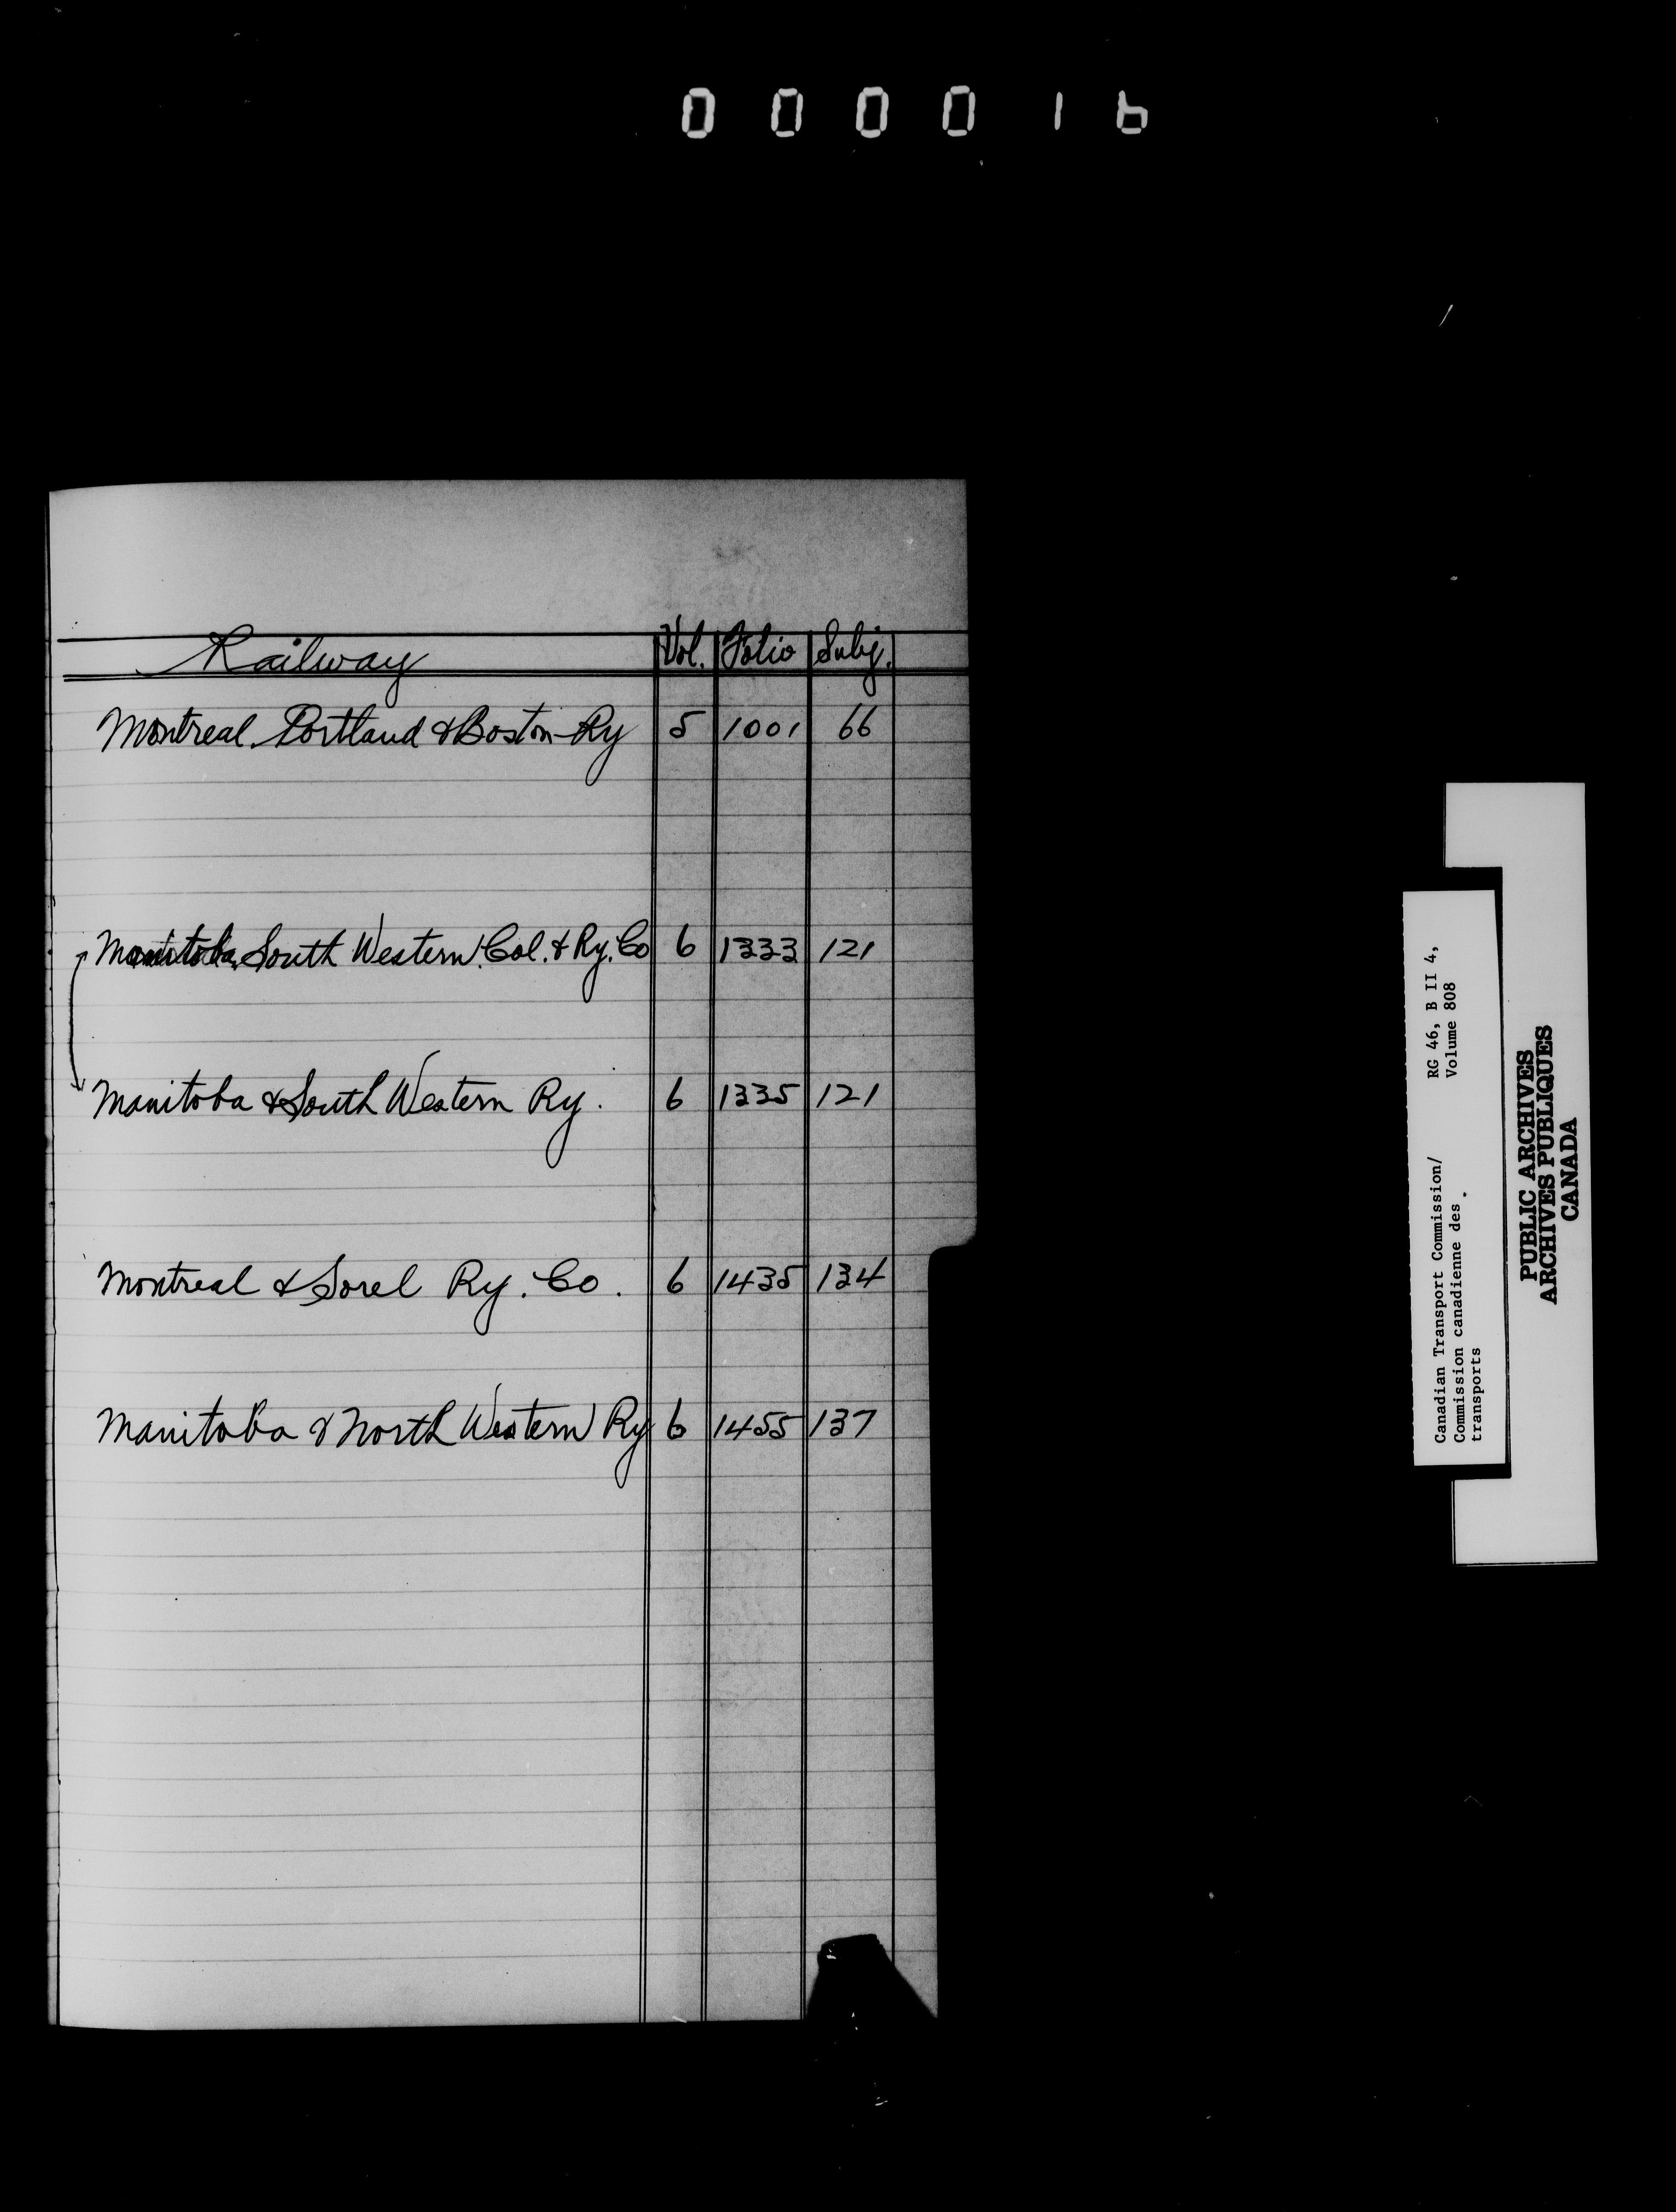 000016
Railway Vol. Folio Subj.
Montreal Portland & Boston Ry 5 1001 66
Manitoba South Western Col. & Ry. Co 6 1333 121
Manitoba & South Western Ry. 6 1335 121
Montreal & Sorel Ry. Co. 6 1435 134
Manitoba & North Western Ry 6 1455 137
Canadian Transport Commission/ RG 46, B II 4,
Commission canadienne des Volume 808
transports
PUBLIC ARCHIVES
ARCHIVES PUBLIQUES
CANADA